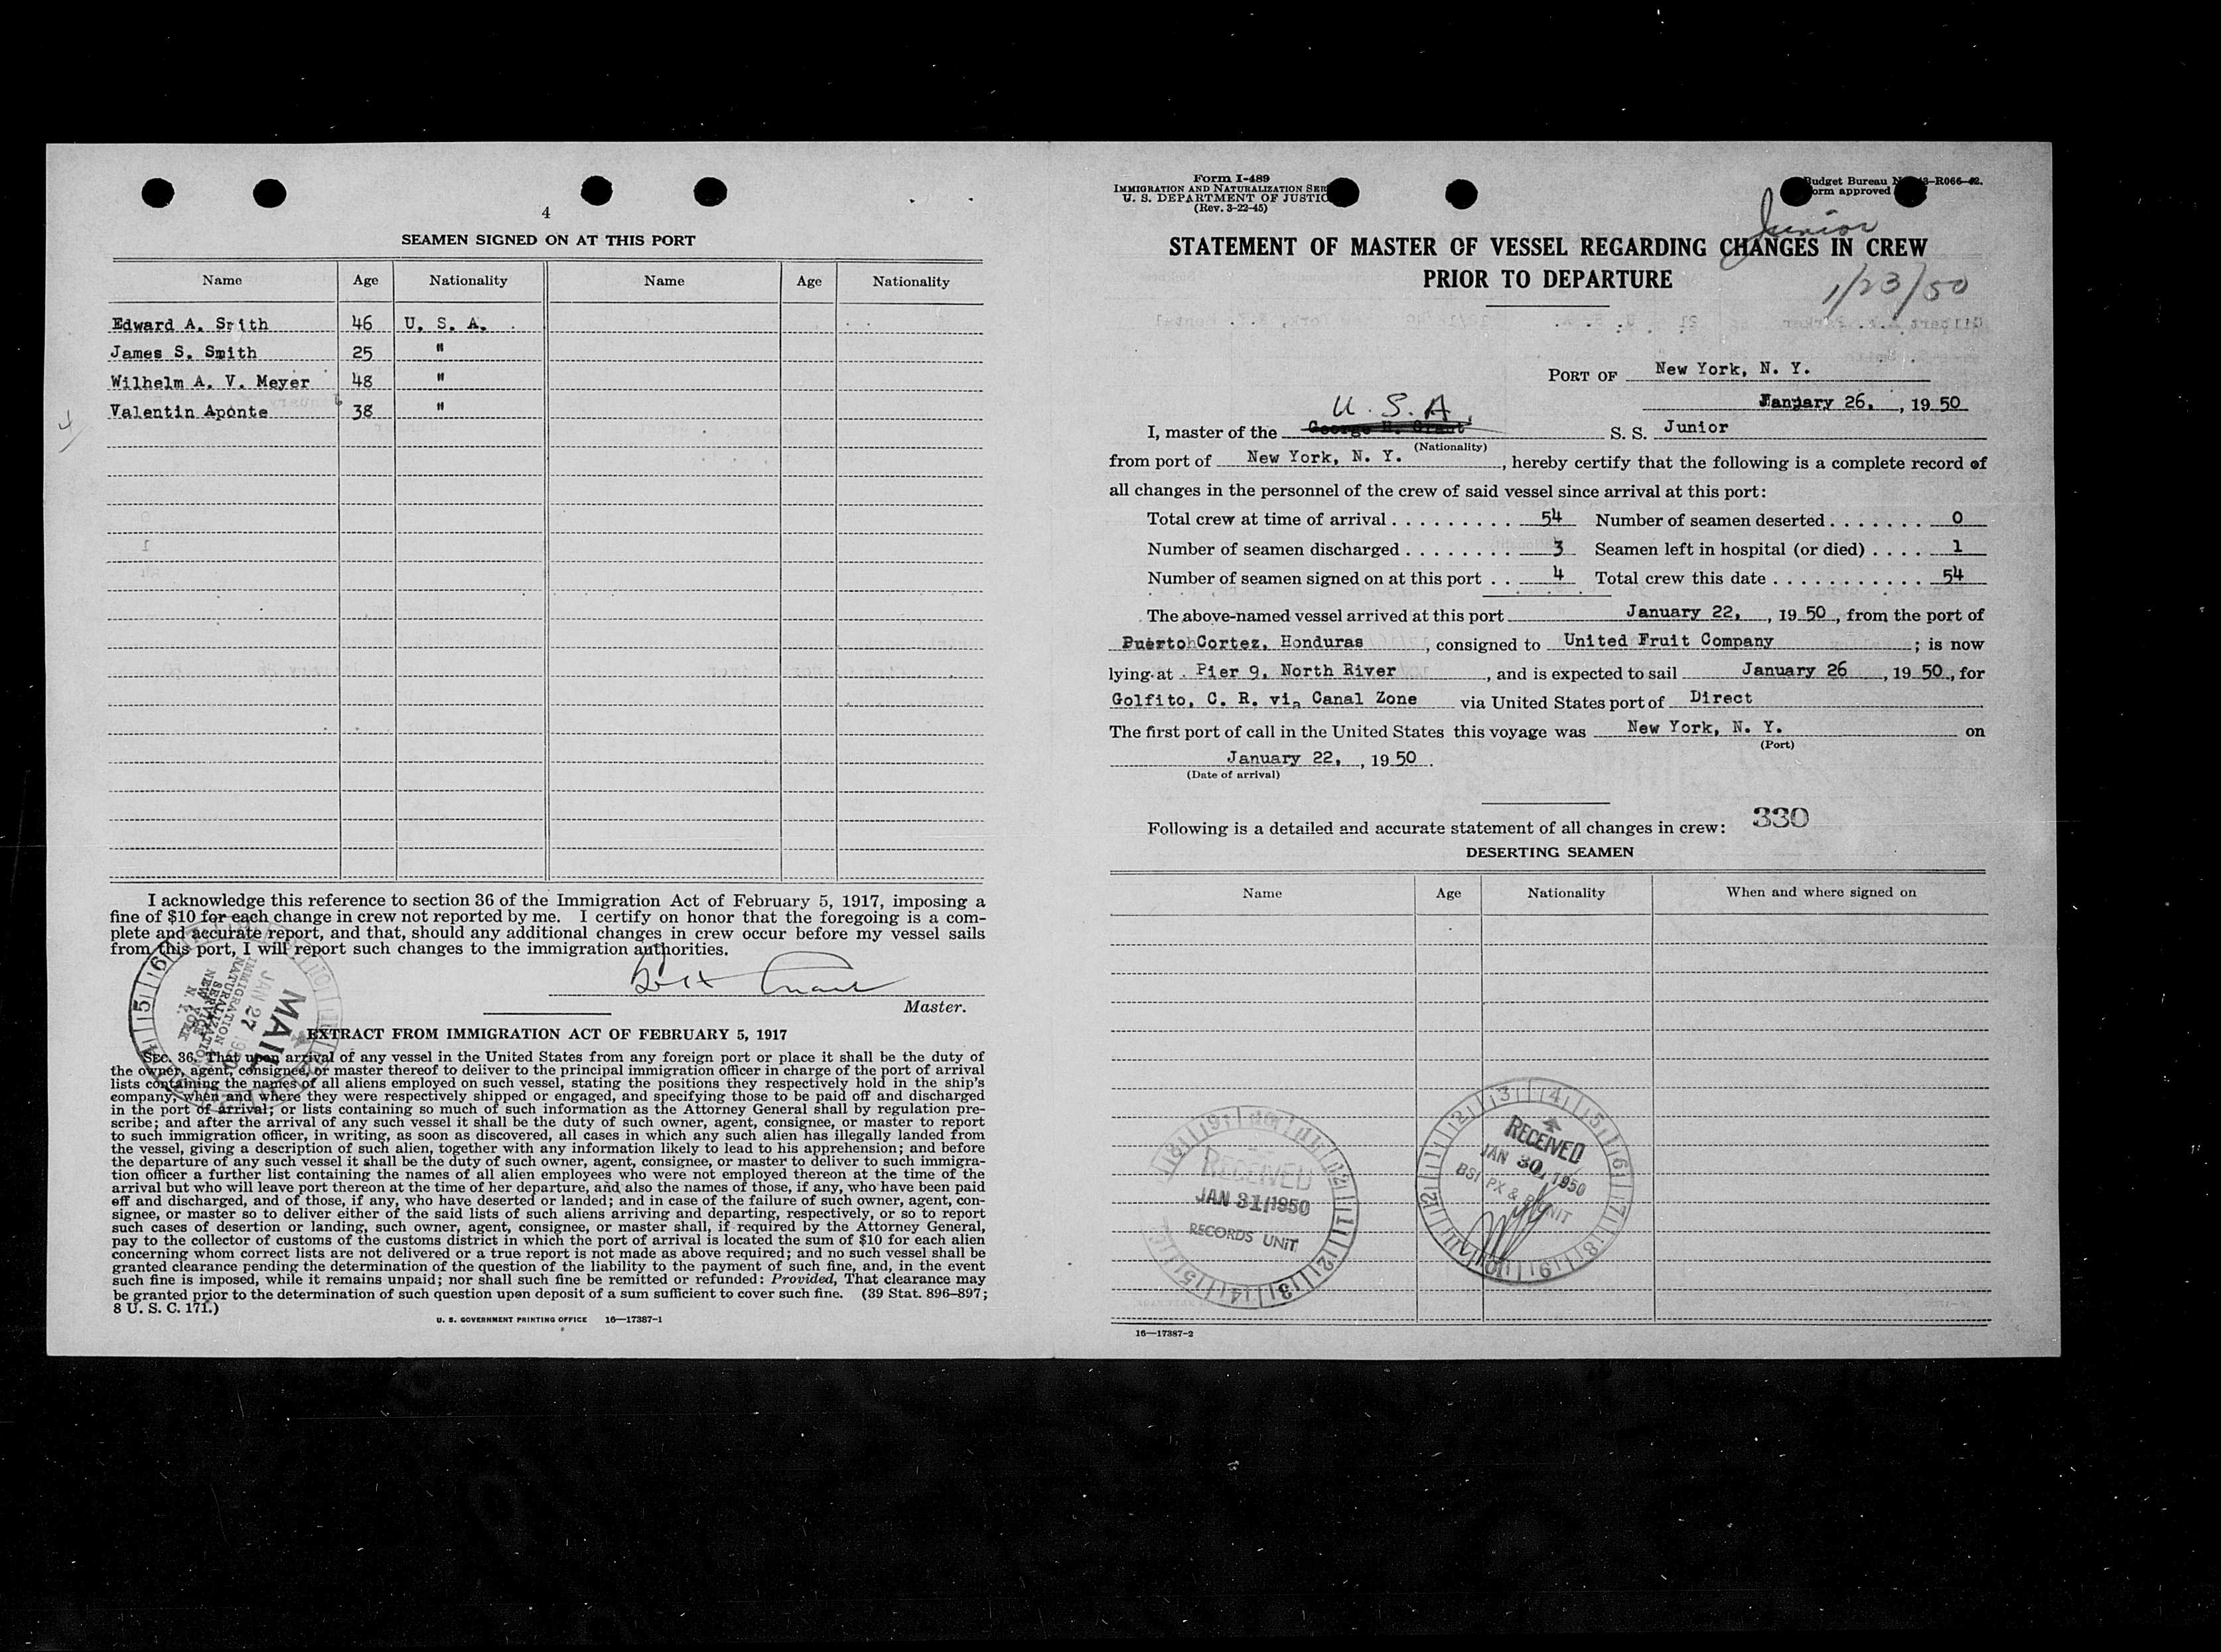 4
SEAMEN SIGNED ON AT THIS PORT
Name Age Nationality Name Age Nationality
Edward A. Smith 46 U. S. A.
James S. Smith 25 "
Wilhelm A. V. Meyer 48 "
Valentin Aponte 38 "
I acknowledge this reference to section 36 of the Immigration Act of February 5, 1917, imposing a
fine of $10 for each change in crew not reported by me. I certify on honor that the foregoing is a com-
plete and accurate report, and that, should any additional changes in crew occur before my vessel sails
from this port, I will report such changes to the immigration authorities.
Master.
MAIL
JAN 27
IMMIGRATION &
NATURALIZATION
SERVICE
NEW YORK
N. Y.
EXTRACT FROM IMMIGRATION ACT OF FEBRUARY 5, 1917
SEC. 36. That upon arrival of any vessel in the United States from any foreign port or place it shall be the duty of
the owner, agent, consignee, or master thereof to deliver to the principal immigration officer in charge of the port of arrival
lists containing the names of all aliens employed on such vessel, stating the positions they respectively hold in the ship's
company, when and where they were respectively shipped or engaged, and specifying those to be paid off and discharged
in the port of arrival; or lists containing so much of such information as the Attorney General shall by regulation pre-
scribe; and after the arrival of any such vessel it shall be the duty of such owner, agent, consignee, or master to report
to such immigration officer, in writing, as soon as discovered, all cases in which any such alien has illegally landed from
the vessel, giving a description of such alien, together with any information likely to lead to his apprehension; and before
the departure of any such vessel it shall be the duty of such owner, agent, consignee, or master to deliver to such immigra-
tion officer a further list containing the names of all alien employees who were not employed thereon at the time of the
arrival but who will leave port thereon at the time of her departure, and also the names of those, if any, who have been paid
off and discharged, and of those, if any, who have deserted or landed; and in case of the failure of such owner, agent, con-
signee, or master so to deliver either of the said lists of such aliens arriving and departing, respectively, or so to report
such cases of desertion or landing, such owner, agent, consignee, or master shall, if required by the Attorney General,
pay to the collector of customs of the customs district in which the port of arrival is located the sum of $10 for each alien
concerning whom correct lists are not delivered or a true report is not made as above required; and no such vessel shall be
granted clearance pending the determination of the question of the liability to the payment of such fine, and, in the event
such fine is imposed, while it remains unpaid; nor shall such fine be remitted or refunded: Provided, That clearance may
be granted prior to the determination of such question upon deposit of a sum sufficient to cover such fine. (39 Stat. 896–897;
8 U. S. C. 171.)
U. S. GOVERNMENT PRINTING OFFICE 16—17387-1
Form I-489
IMMIGRATION AND NATURALIZATION
U. S. DEPARTMENT OF JUSTIC
(Rev. 3-22-45)
Budget Bureau 3-R066-42.
orm approved
Junior
STATEMENT OF MASTER OF VESSEL REGARDING CHANGES IN CREW
PRIOR TO DEPARTURE
1/23/50
PORT OF New York, N. Y.
January 26, , 19 50
U. S. A.
I, master of the George H. Grant S. S. Junior
(Nationality)
from port of New York, N. Y. , hereby certify that the following is a complete record of
all changes in the personnel of the crew of said vessel since arrival at this port:
Total crew at time of arrival 54 Number of seamen deserted 0
Number of seamen discharged 3 Seamen left in hospital (or died) 1
Number of seamen signed on at this port 4 Total crew this date 54
The above-named vessel arrived at this port January 22, , 19 50 , from the port of
Puerto Cortez, Honduras , consigned to United Fruit Company ; is now
lying at Pier 9, North River , and is expected to sail January 26 , 19 50 , for
Golfito, C. R. via Canal Zone via United States port of Direct
The first port of call in the United States this voyage was New York, N. Y. on
(Port)
January 22, , 19 50 .
(Date of arrival)
Following is a detailed and accurate statement of all changes in crew: 330
DESERTING SEAMEN
Name Age Nationality When and where signed on
RECEIVED
JAN 31 1950
RECORDS UNIT
RECEIVED
JAN 30, 1950
BSI PX &
16—17387-2